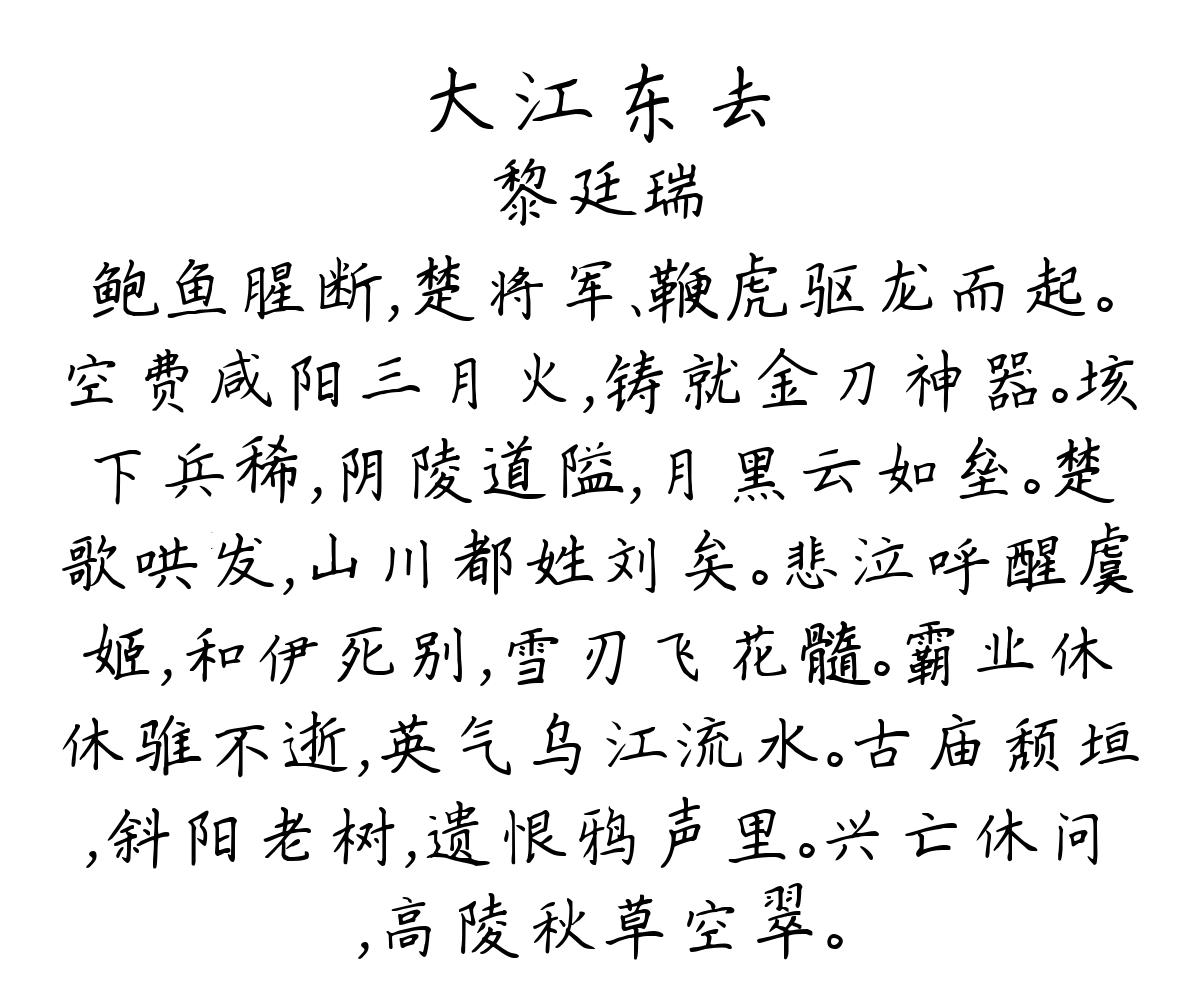 大江东去
黎廷瑞
鲍鱼腥断,楚将军、鞭虎驱龙而起。
空费咸阳三月火,铸就金刀神器。垓
下兵稀,阴陵道隘,月黑云如垒。楚
歌哄发,山川都姓刘矣。悲泣呼醒虞
姬,和伊死别,雪刃飞花髓。霸业休
休骓不逝,英气乌江流水。古庙颓垣
,斜阳老树,遗恨鸦声里。兴亡休问
,高陵秋草空翠。